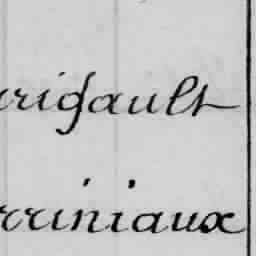 rrigault
rriniaux